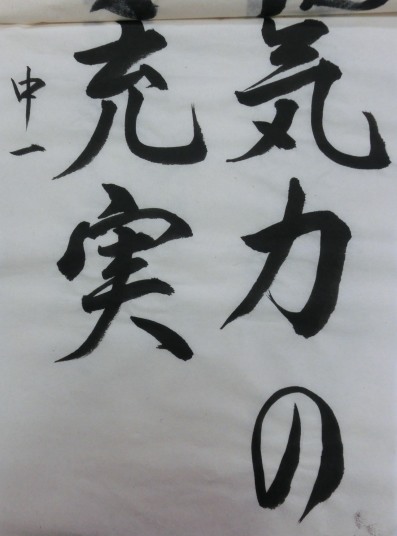 気力の
充実
申一